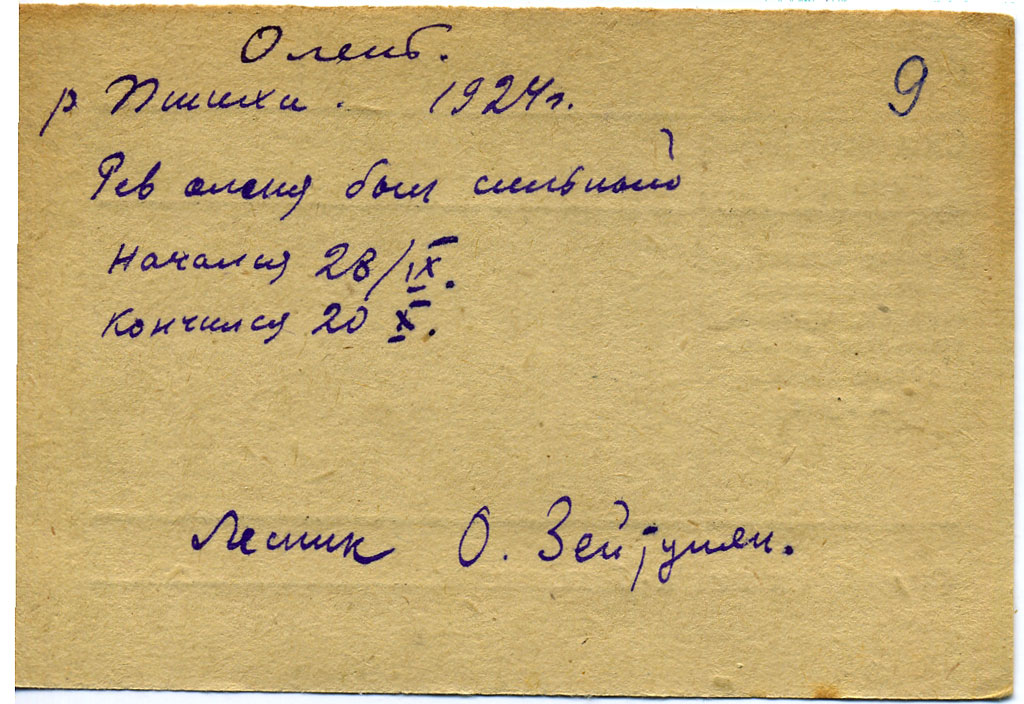 Олень.
9
р. Пшиха. 1924 г.
Рев оленя был сильной
Начался 28/IX.
Кончился 20 X.
Лесник О. Зейтунян.